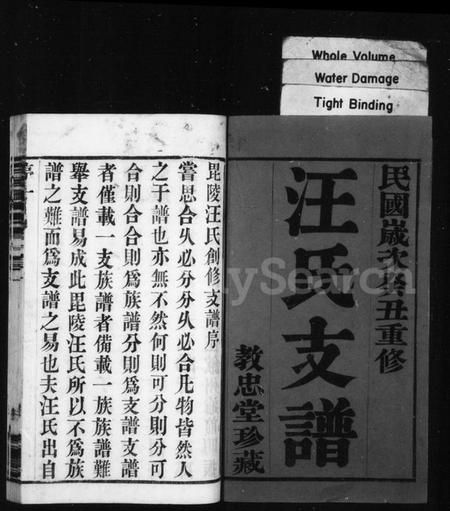 Whole Volume
Water Damage
Tight Binding
民國歲次癸丑重修
汪氏支譜
敦忠堂珍藏
毘陵汪氏創修支譜序
嘗思合久必分分久必合凡物皆然人
之于譜也亦無不然何則可分則分可
合則合合則爲族譜分則爲支譜支譜
者僅載一支族譜者備載一族族譜難
舉支譜易成此毘陵汪氏所以不爲族
譜之難而爲支譜之易也夫汪氏出自
序一
MySearch